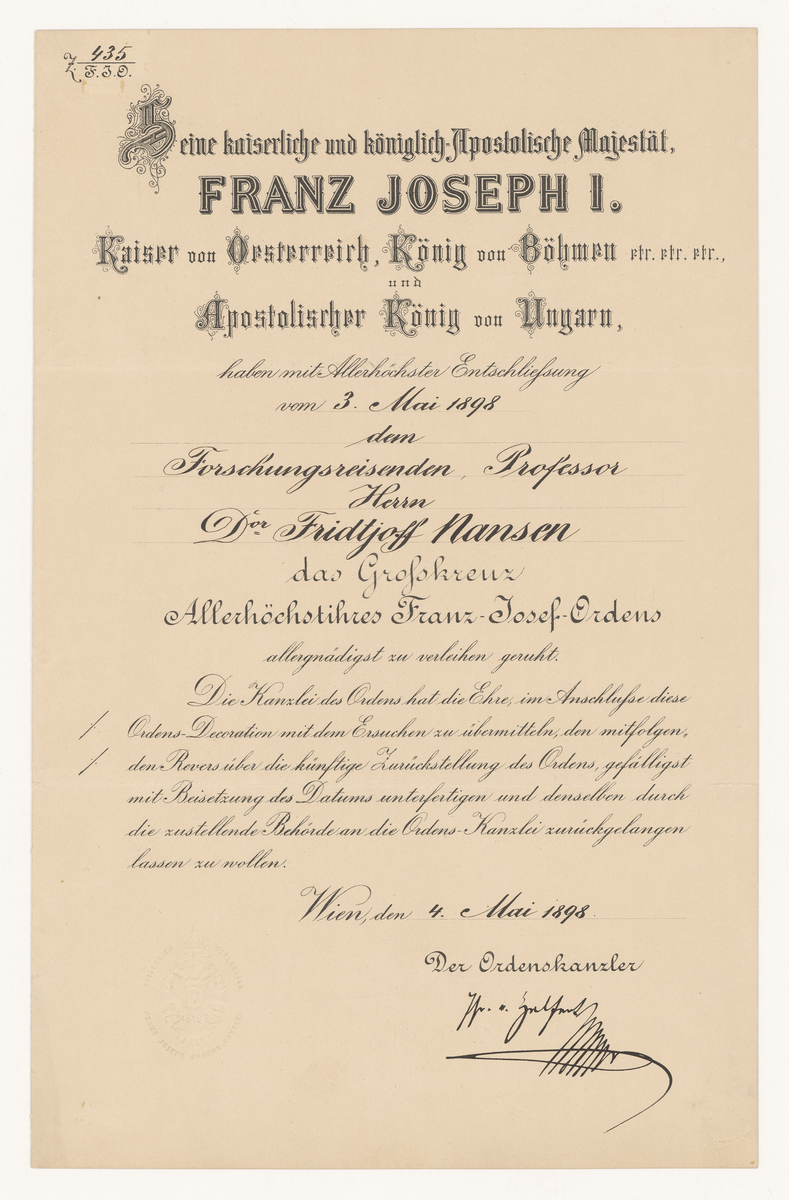 Z. 435
F. J. O.
Seine kaiserliche und königlich-Apostolische Majestät,
FRANZ JOSEPH I.
Kaiser von Oesterreich, König von Böhmen etc. etc. etc.,
und
Apostolischer König von Ungarn,
haben mit Allerhöchster Entschließung
vom 3. Mai 1898
dem
Forschungsreisenden, Professor
Herrn
Dor Fridtjoff Nansen
das Großkreuz
Allerhöchstihres Franz-Josef-Ordens
allergnädigst zu verleihen geruht.
Die Kanzlei des Ordens hat die Ehre, im Anschluße diese
Ordens-Decoration mit dem Ersuchen zu übermitteln, den mitfolgen-
den Revers über die künftige Zurückstellung des Ordens, gefälligst
mit Beisetzung des Datums unterfertigen und denselben durch
die zustellende Behörde an die Ordens-Kanzlei zurückgelangen
lassen zu wollen.
Wien, den 4. Mai 1898.
Der Ordenskanzler
Fr. v. Helfert